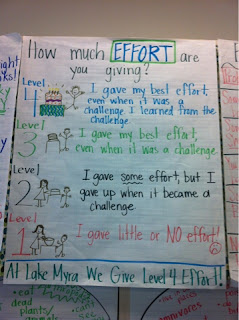 How much EFFORT are
you giving?
Level
4
I gave my best effort,
even when it was a
challenge I learned from the
challenge.
Level
3
I gave my best effort,
even when it was a challenge
Level
2
I gave some effort, but I
gave up when it became a
challenge
Level
1
I gave little or NO effort!
At Lake Myra We Give Level 4 Effort!
eat
dead
plants/